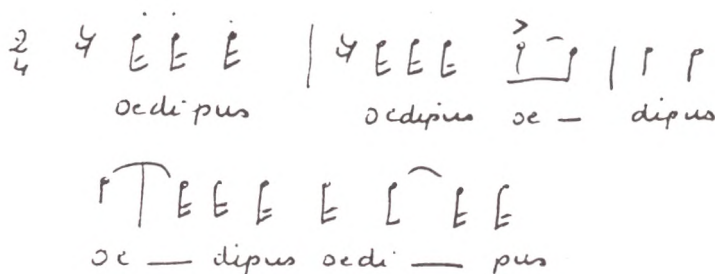 2
4
oedipus oedipus oe — dipus
oe — dipus oedi — pus